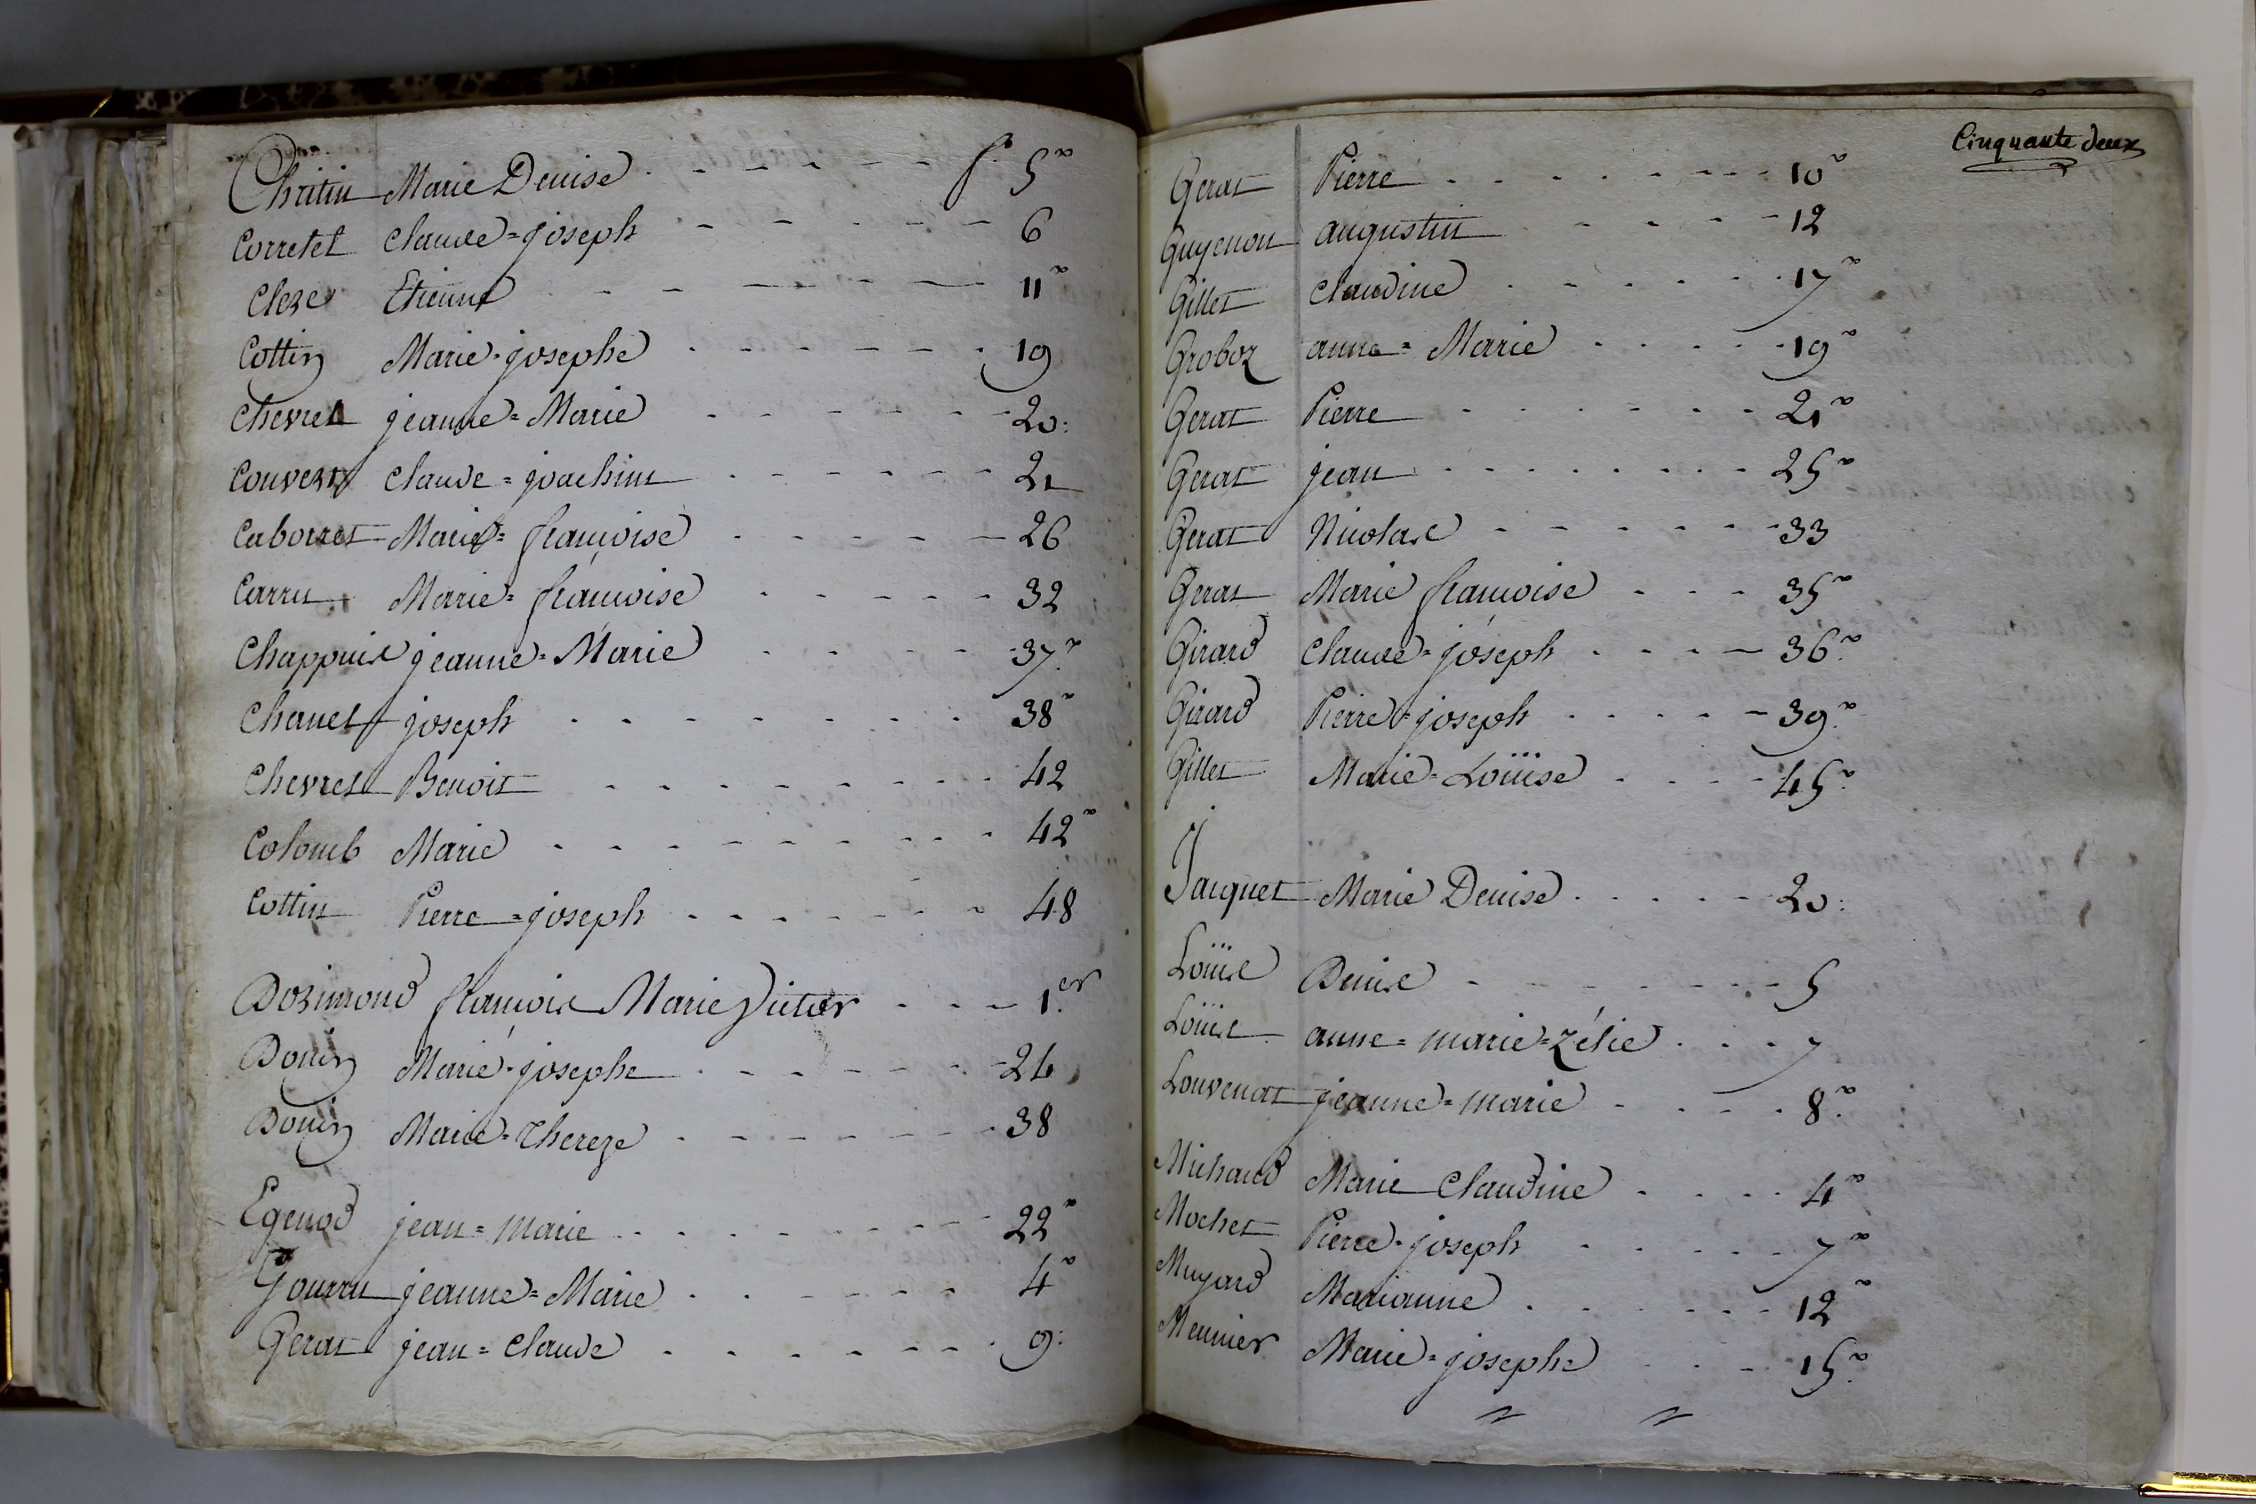 Chritin Marie Denise . - - - - - - f.º 5º
Corretet claude=joseph - - - - - - 6
Cleze Etienne - - - - - - 11º
Cottin Marie=josephe - - - - - - 19
Chevret jeanne=Marie - - - - - - 20:
Convert claude=joachim - - - - - - 21
Caborret Marie=françoise - - - - - 26
Carru Marie=françoise - - - - - 32
Chappuis jeanne=Marie - - - - - 37º
Chanet joseph - - - - - - - 38º
Chevret Benoit - - - - - - - 42
Colomb Marie - - - - - - - - 42º
Cottin Pierre=joseph - - - - - - 48
Dorimond françois Marie Victor - - - 1.er
Donin Marie=josephe - - - - - - 24
Donin Marie=thereze - - - - - - 38
Egenod jean=marie - - - - - - - 22º
Gourru jeanne=Marie - - - - - - 4º
Gerat jean=claude - - - - - - - 9:
Cinquante deux
Gerat Pierre - - - - - - - - 10º
Guyenon augustin - - - - 12
Gillet claudine - - - - - - 17º
Groboz anne=Marie - - - - - 19º
Gerat Pierre - - - - - - 21º
Gerat jean - - - - - - - - 25º
Gerat Nicolas - - - - - - 33
Gerat Marie françoise - - - 35º
Girard claude=joseph - - - - 36º
Girard Pierre=joseph - - - - - 39º
Gillet Marie=Loüise - - - - 45º
Jacquet Marie Denise - - - - - 20:
Loüis Denise - - - - - - - 5
Loüis anne=marie=zélie - - - - 7
Louvenat jeanne=marie - - - - 8º
Michaud Marie Claudine - - - - 4º
Mochet Pierre=joseph - - - - - 7º
Muyard Marianne - - - - - - 12º
Meunier Marie=josephe - - - 15º